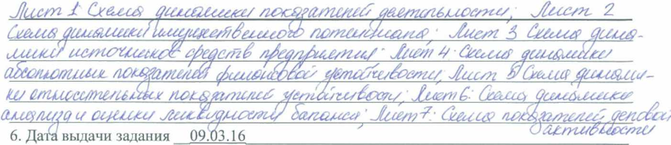 Лист 1 Схема динамики показателей деятельности; Лист 2
Схема динамики имущественного потенциала; Лист 3 Схема дина-
мики источников средств предприятия; Лист 4: Схема динамики
абсолютных показателей финансовой устойчивости, Лист 5 Схема динами-
ки относительных показателей устойчивости; Лист 6: Схема динамики
анализа и оценки ликвидности баланса; Лист 7: Схема показателей деловой
активности
6. Дата выдачи задания 09.03.16